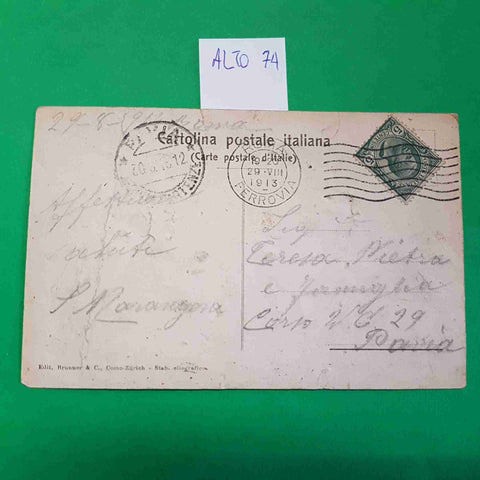 ALTO 74
29-8-
Cartolina postale italiana
(Carte postale d'Italie)
PAVIA
18-20
29·VIII
1913
FERROVIA
Affettuosi
saluti
S. Marangoni
Sig.
Teresa Pietra
e Famiglia
Corso V. E. 29
Pavia
Edit. Brunner & C., Como-Zürich - Stab. eliografico.